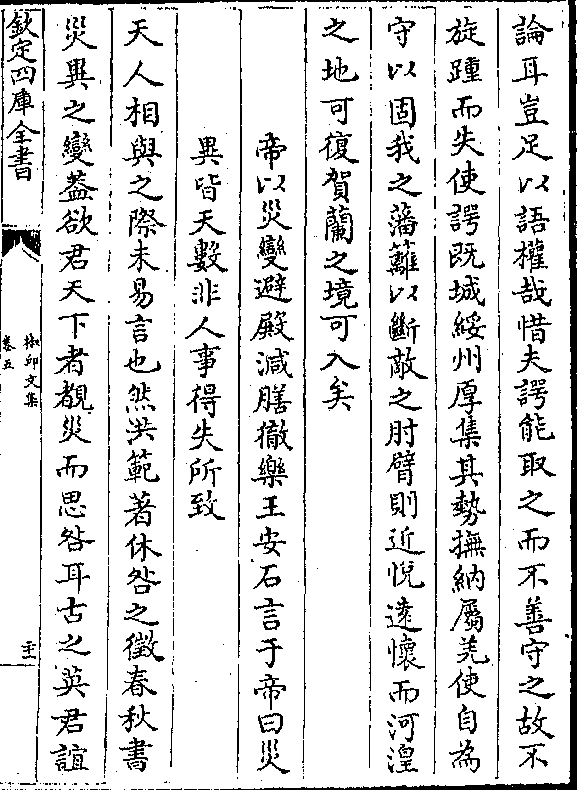 論耳豈足以語權哉惜夫諤能取之而不善守之故不
旋踵而失使諤既城綏州厚集其勢撫納屬羌使自為
守以固我之藩籬以斷敵之肘臂則近悅逺懷而河湟
之地可復賀蘭之境可入矣
帝以災變避殿減膳徹樂王安石言于帝曰災
異皆天數非人事得失所致
天人相與之際未易言也然洪範著休咎之徵春秋書
災異之變葢欲君天下者覩災而思咎耳古之英君誼
欽定四庫全書
椒邱文集
卷五